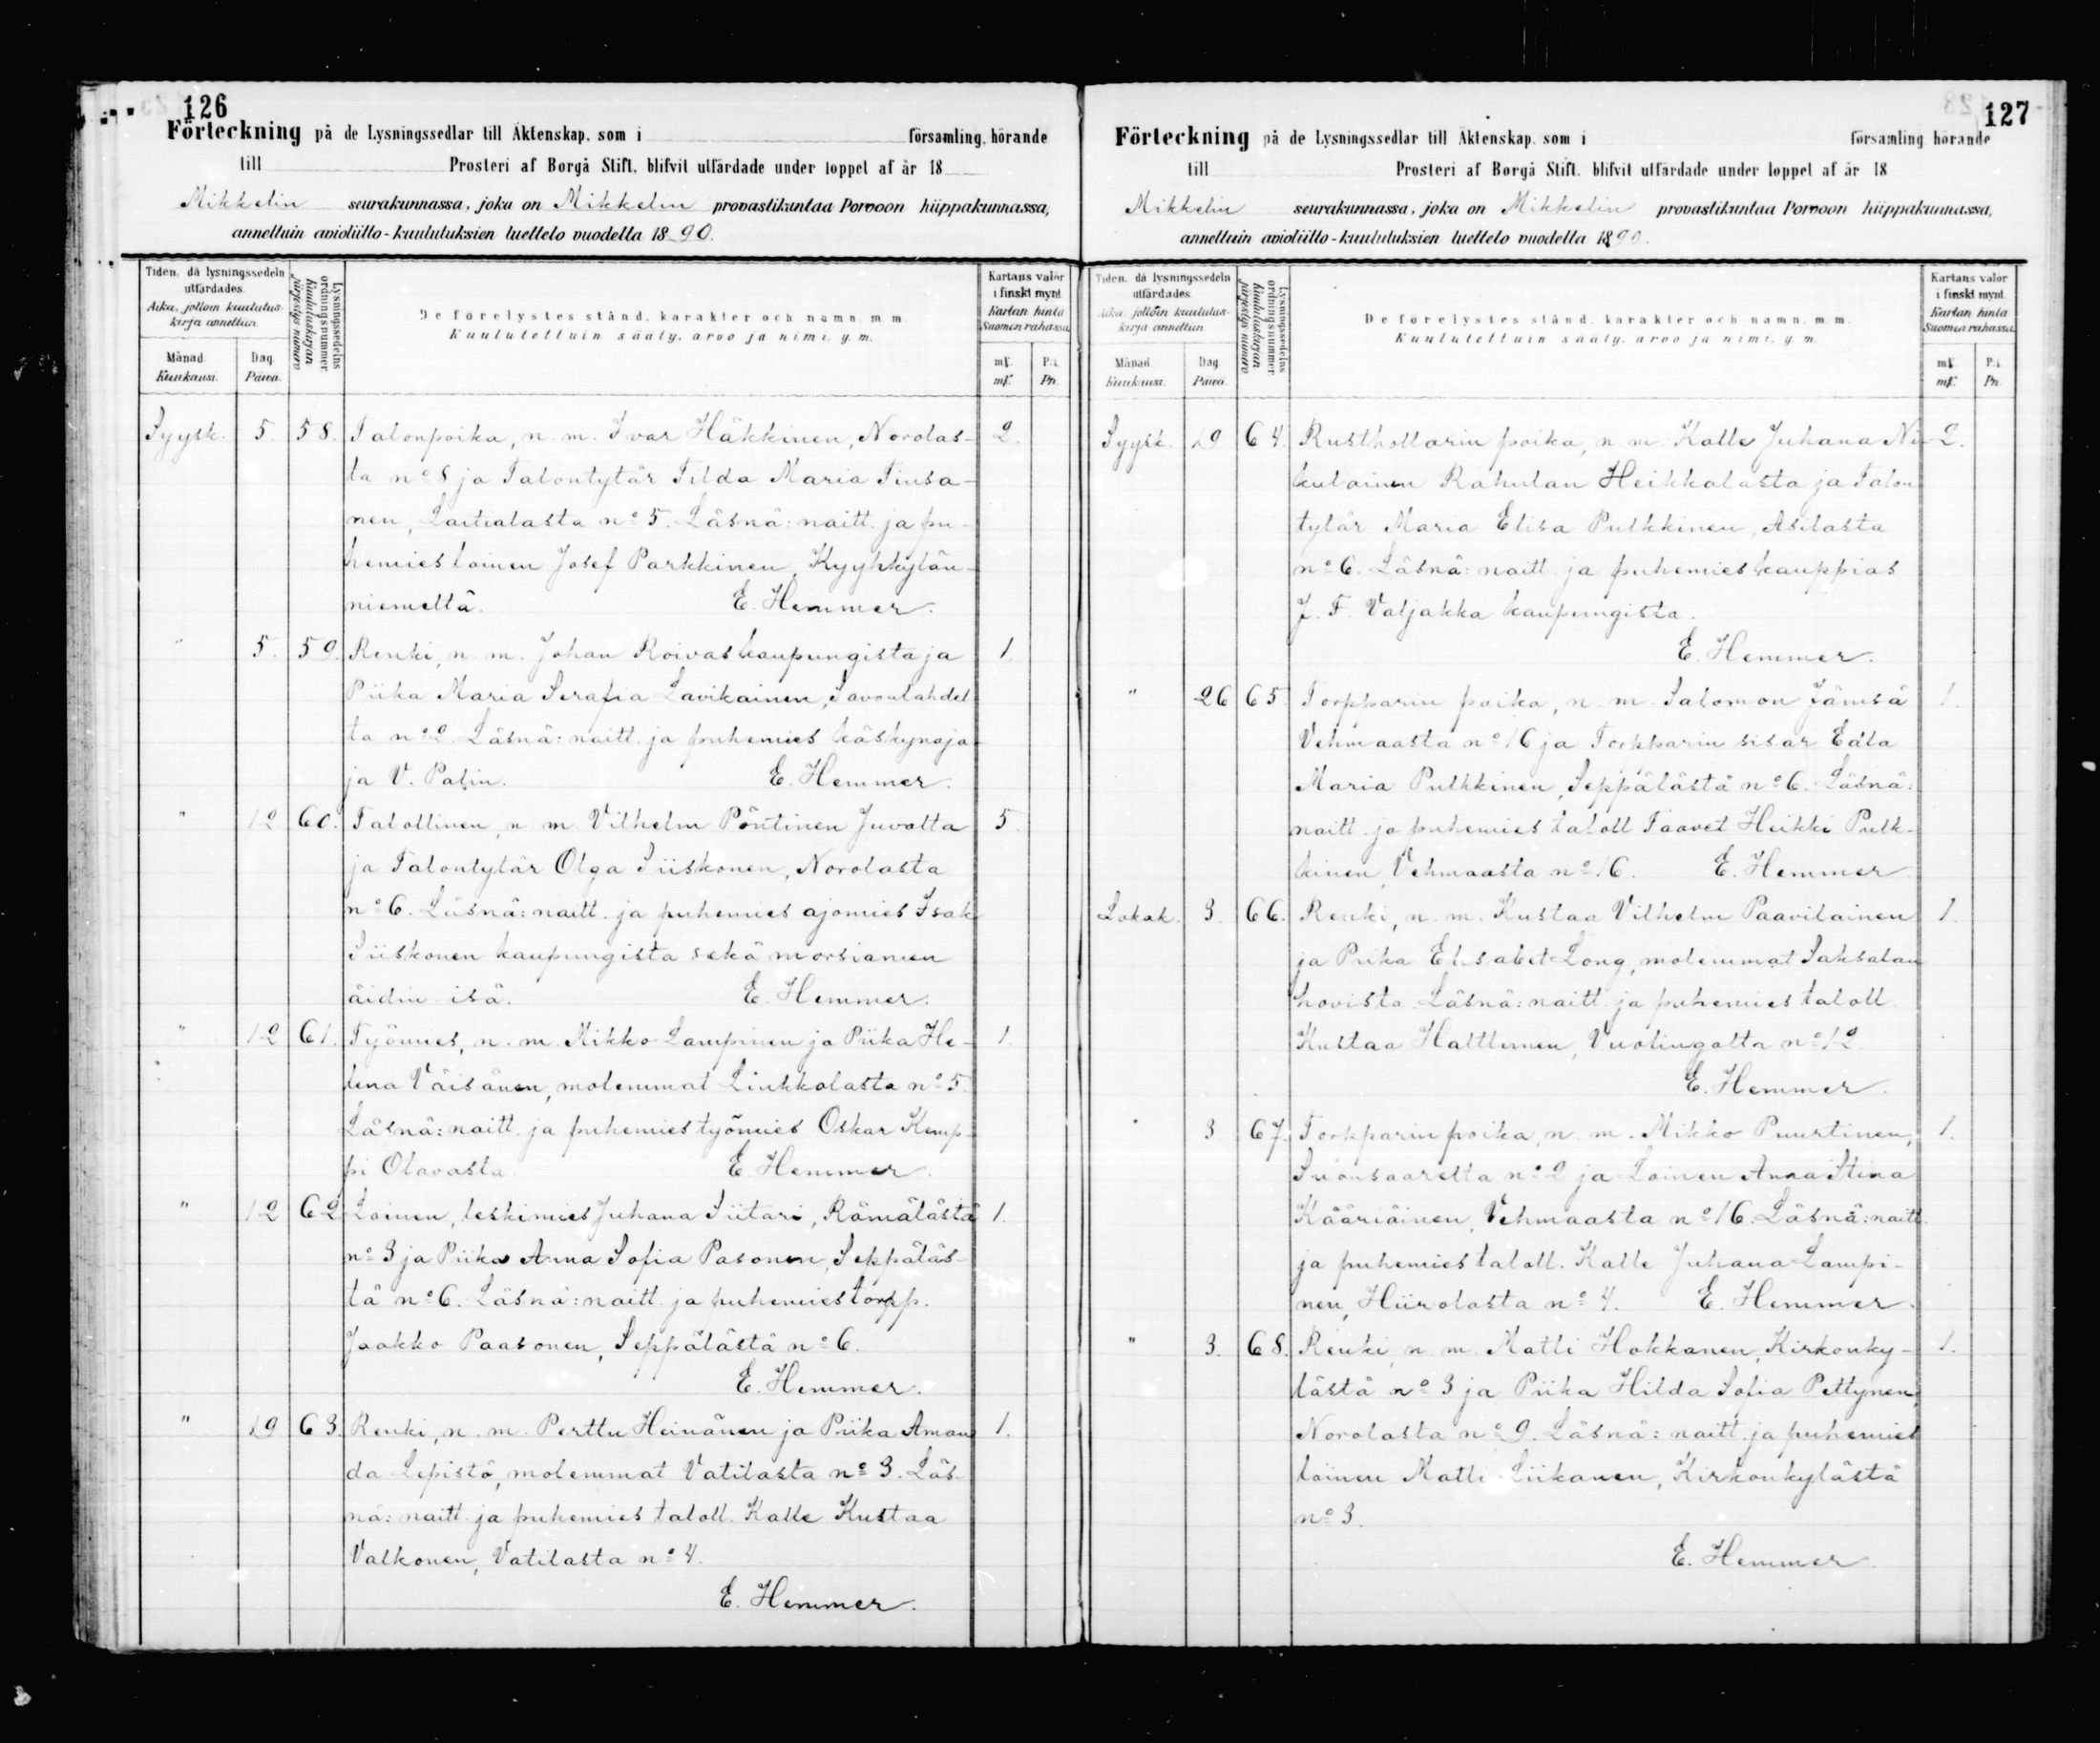 126
Förteckning på de Lysningssedlar till Äktenskap, som i församling, hörande
till Prosteri af Borgå Stift, blifvit utfärdade under loppet af år 18
Mikkelin seurakunnassa, joka on Mikkelin provastikuntaa Porvoon hiippakunnassa,
annettuin avioliitto-kuulutuksien luettelo vuodelta 1890.
Tiden, då lysningssedeln utfärdades.
Aika, jolloin kuulutuskirja annettiin.
Månad. Kuukausi.
Dag. Päivä.
Lysningssedelns ordningsnummer
Kuulutuskirjan järjestys numero
De förelystes stånd, karakter och namn m. m.
Kuulutettuin sääty, arvo ja nimi, y. m.
Kartans valör i finskt mynt.
Kartan hinta Suomen rahassa.
mk. mk.
P:i. Pn.
Syysk. 5. 58. Talonpoika, n. m. Ivar Häkkinen, Norolas- 2.
ta no 8 ja Talontytär Tilda Maria Tiusa-
nen, Laitialasta no 5. Läsnä: naitt. ja pu-
hemies loinen Josef Parkkinen, Kyyhkylän-
niemeltä. E. Hemmer.
" 5. 59. Renki, n. m. Johan Roivas kaupungista ja 1.
Piika Maria Serafia Lavikainen, Savonlahdel-
ta no 2. Läsnä: naitt. ja puhemies käskynaja-
ja V. Palin. E. Hemmer.
" 12 60. Talollinen, n. m. Vilhelm Pöntinen Juvalta 5.
ja Talontytär Olga Siiskonen, Norolasta
no 6. Läsnä: naitt. ja puhemies ajomies Isak
Siiskonen kaupungista sekä morsiamen
äidin isä. E. Hemmer.
" 12 61. Työmies, n. m. Mikko Lampinen ja Piika He- 1.
lena Väisänen, molemmat Liukkolasta no 5.
Läsnä: naitt. ja puhemies työmies Oskar Kemp-
pi Olavasta. E. Hemmer.
" 12 62 Loinen, leskimies Juhana Siitari, Rämälästä 1.
no 3 ja Piika Anna Sofia Pasonen, Seppäläs-
tä no 6. Läsnä: naitt. ja puhemies torpp.
Jaakko Paasonen, Seppälästä no 6.
E. Hemmer.
" 19 63. Renki, n. m. Perttu Heinänen ja Piika Aman 1.
da Lepistö, molemmat Vatilasta no 3. Läs-
nä: naitt. ja puhemies taloll. Kalle Kustaa
Valkonen, Vatilasta no 4.
E. Hemmer.
127
Förteckning på de Lysningssedlar till Äktenskap, som i församling hörande
till Prosteri af Borgå Stift, blifvit utfärdade under loppet af år 18
Mikkelin seurakunnassa, joka on Mikkelin provastikuntaa Porvoon hiippakunnassa,
annettuin avioliitto-kuulutuksien luettelo vuodelta 1890.
Tiden, då lysningssedeln utfärdades.
Aika, jolloin kuulutuskirja annettiin.
Månad. Kuukausi.
Dag. Päivä.
Lysningssedelns ordningsnummer
Kuulutuskirjan järjestys numero
De förelystes stånd, karakter och namn, m. m.
Kuulutettuin sääty, arvo ja nimi, y. m.
Kartans valör i finskt mynt.
Kartan hinta Suomen rahassa.
mk. mk.
P:i. Pn.
Syysk. 19 64. Rusthollarin poika, n. m. Kalle Juhana Ni- 2.
kulainen Rahulan Heikkalasta ja Talon
tytär Maria Elisa Pulkkinen, Asilasta
no 6. Läsnä: naitt. ja puhemies kauppias
J. F. Valjakka kaupungista.
E. Hemmer.
" 26 65 Torpparin poika, n. m. Salomon Jämsä 1.
Vehmaasta no 16 ja Torpparin sisar Edla
Maria Pulkkinen, Seppälästä no 6. Läsnä:
naitt. ja puhemies taloll Taavet Heikki Pulk-
kinen, Vehmaasta no 16. E. Hemmer
Lokak. 3. 66. Renki, n. m. Kustaa Vilhelm Paavilainen 1.
ja Piika Elisabet Long, molemmat Saksalan
hovista. Läsnä: naitt. ja puhemies taloll
Kustaa Halttunen, Vuolingolta no 12.
E. Hemmer.
" 3. 67. Torpparin poika, n. m. Mikko Puurtinen, 1.
Suonsaarelta no 2 ja Loinen Anna Stina
Kääriäinen, Vehmaasta no 16. Läsnä: naitt.
ja puhemies taloll. Kalle Juhana Lampi-
nen, Hiirolasta no 4. E. Hemmer.
" 3. 68. Renki, n. m. Matti Hokkanen, Kirkonky- 1.
lästä no 3 ja Piika Hilda Sofia Pettynen,
Norolasta no 9. Läsnä: naitt. ja puhemies
loinen Matti Liikanen, Kirkonkylästä
no 3.
E. Hemmer.